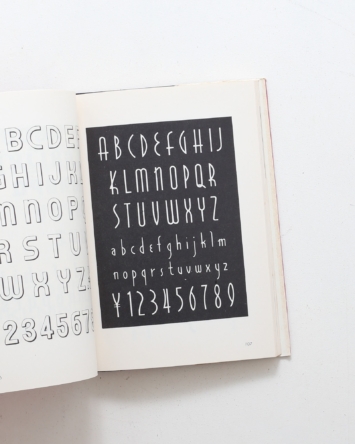 BCDE
GHIJK
MNOP
RSTU
WXYZ
234567
ABCDEFGHIJ
KLMNOPQR
STUVWXYZ
abcdefghijklm
nopqrstuvwxyz
¥123456789